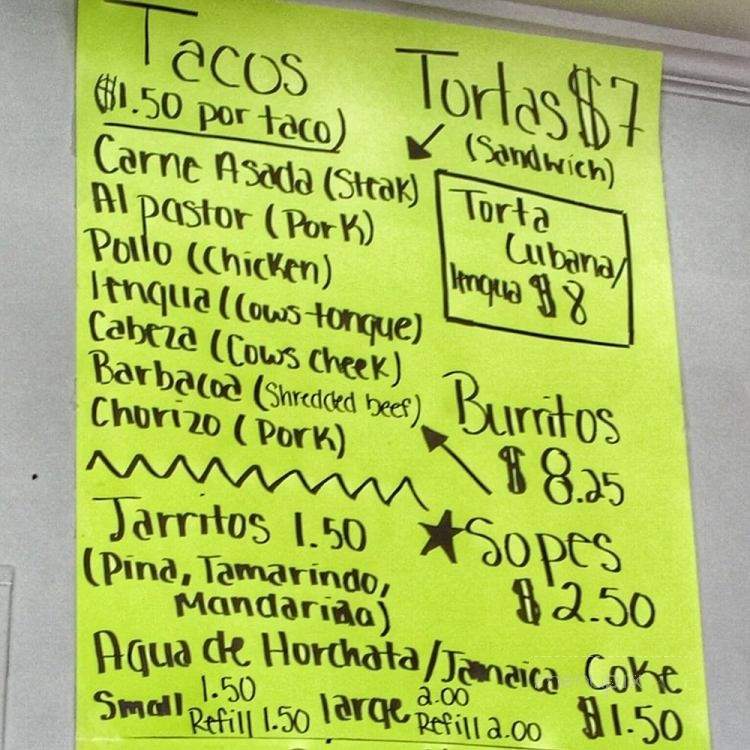 Tacos
($1.50 por taco)
Carne Asada (Steak)
Al pastor (Pork)
Pollo (Chicken)
lengua (Cows tongue)
Cabeza (Cows cheek)
Barbacoa (Shredded beef)
Chorizo (Pork)
Tortas $7
(Sandwich)
Torta
Cubana/
lengua $8
Burritos
$8.25
★Sopes
$2.50
Jarritos 1.50
(Pina, Tamarindo,
Mandarina)
Agua de Horchata/Jamaica
Small 1.50 large 2.00
Refill 1.50 Refill 2.00
Coke
$1.50